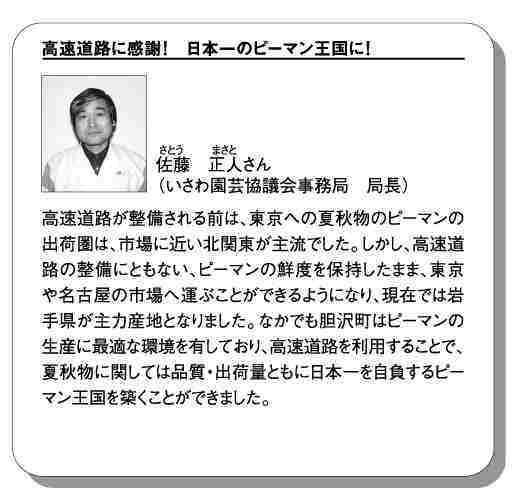 高速道路に感謝！ 日本一のピーマン王国に！
さとう まさと
佐藤 正人さん
（いさわ園芸協議会事務局 局長）
高速道路が整備される前は、東京への夏秋物のピーマンの
出荷圏は、市場に近い北関東が主流でした。しかし、高速道
路の整備にともない、ピーマンの鮮度を保持したまま、東京
や名古屋の市場へ運ぶことができるようになり、現在では岩
手県が主力産地となりました。なかでも胆沢町はピーマンの
生産に最適な環境を有しており、高速道路を利用することで、
夏秋物に関しては品質・出荷量ともに日本一を自負するピー
マン王国を築くことができました。